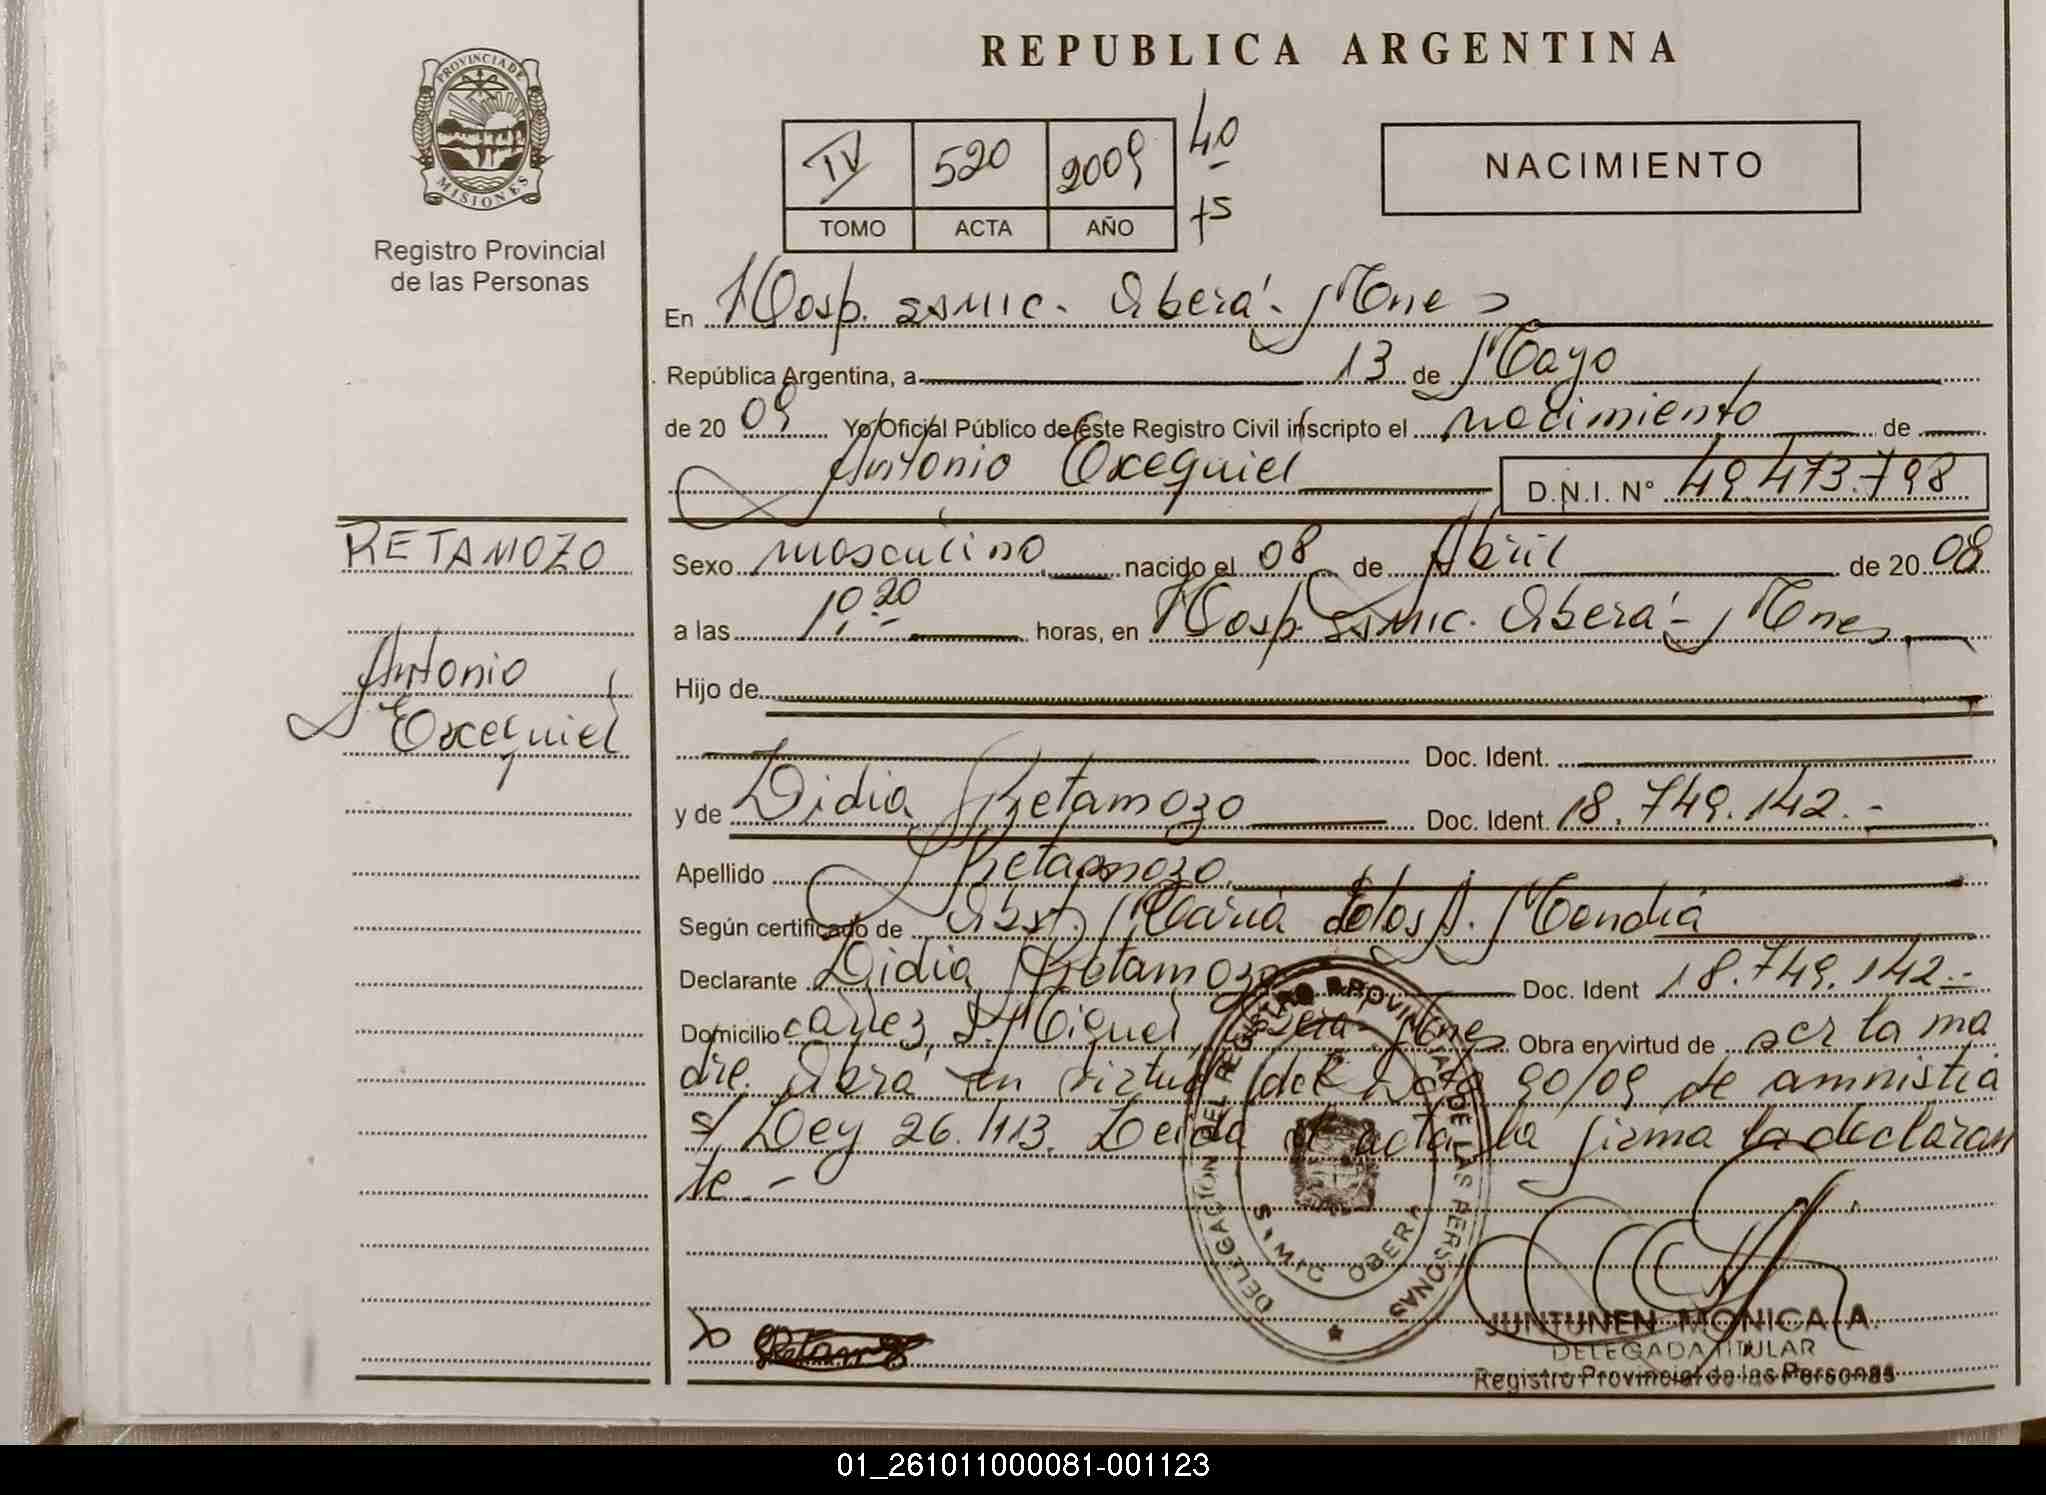 PROVINCIA DE
MISIONES
Registro Provincial
de las Personas
RETAMOZO
Antonio
Exequiel
REPUBLICA ARGENTINA
IV 520 2009 40
TOMO ACTA AÑO 75
NACIMIENTO
En Hosp. SSMIC. Oberá - Mnes
República Argentina, a 13 de Mayo
de 20 09 Yo Oficial Público de este Registro Civil inscripto el nacimiento de
Antonio Exequiel D.N.I. N° 49.473.798
Sexo masculino nacido el 08 de Abril de 20 08
a las 10,20 horas, en Hosp. SSMIC. Oberá - Mnes
Hijo de
Doc. Ident.
y de Didia Retamozo Doc. Ident. 18.749.142.-
Apellido Retamozo
Según certificado de Obst. María de los A. Mendiá
Declarante Didia Retamozo Doc. Ident 18.749.142.-
Domicilio S. Miguel, Oberá Mnes Obra en virtud de ser la ma
dre. Obra en virtud del Dcto 90/09 de amnistia
s/ Ley 26.413. Leida el acta la firma la declaran
te.-
DELEGACION DEL REGISTRO PROVINCIAL DE LAS PERSONAS
OBERA
Retamozo
JUNTUNEN MONICA A.
DELEGADA TITULAR
Registro Provincial de las Personas
01_261011000081-001123